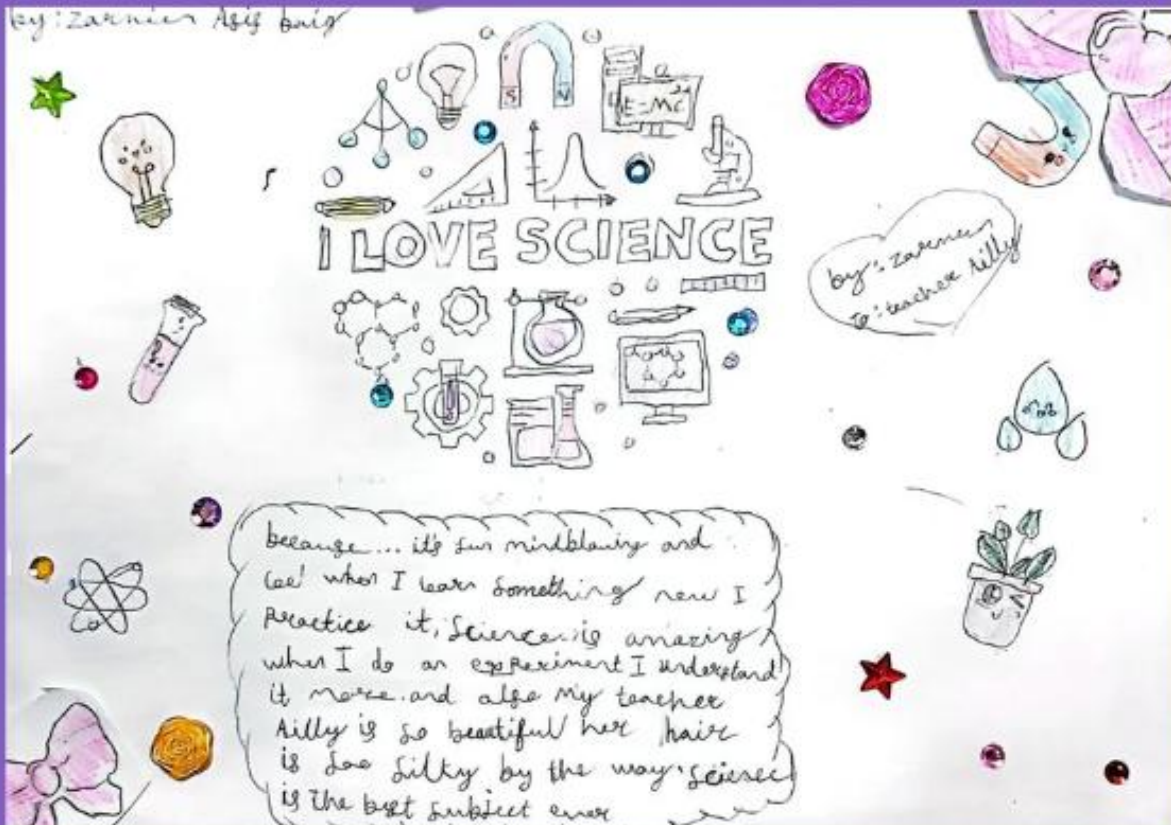 by: Zarnien Asif baig
S N
E=MC²
I LOVE SCIENCE
by: Zarnien
To: teacher Ailly
because... it's fun mindblowing and
cool when I learn something new I
practice it, Science is amazing
when I do an experiment I understand
it more. and also my teacher
Ailly is so beautiful her hair
is soo silky by the way. science
is the best subject ever